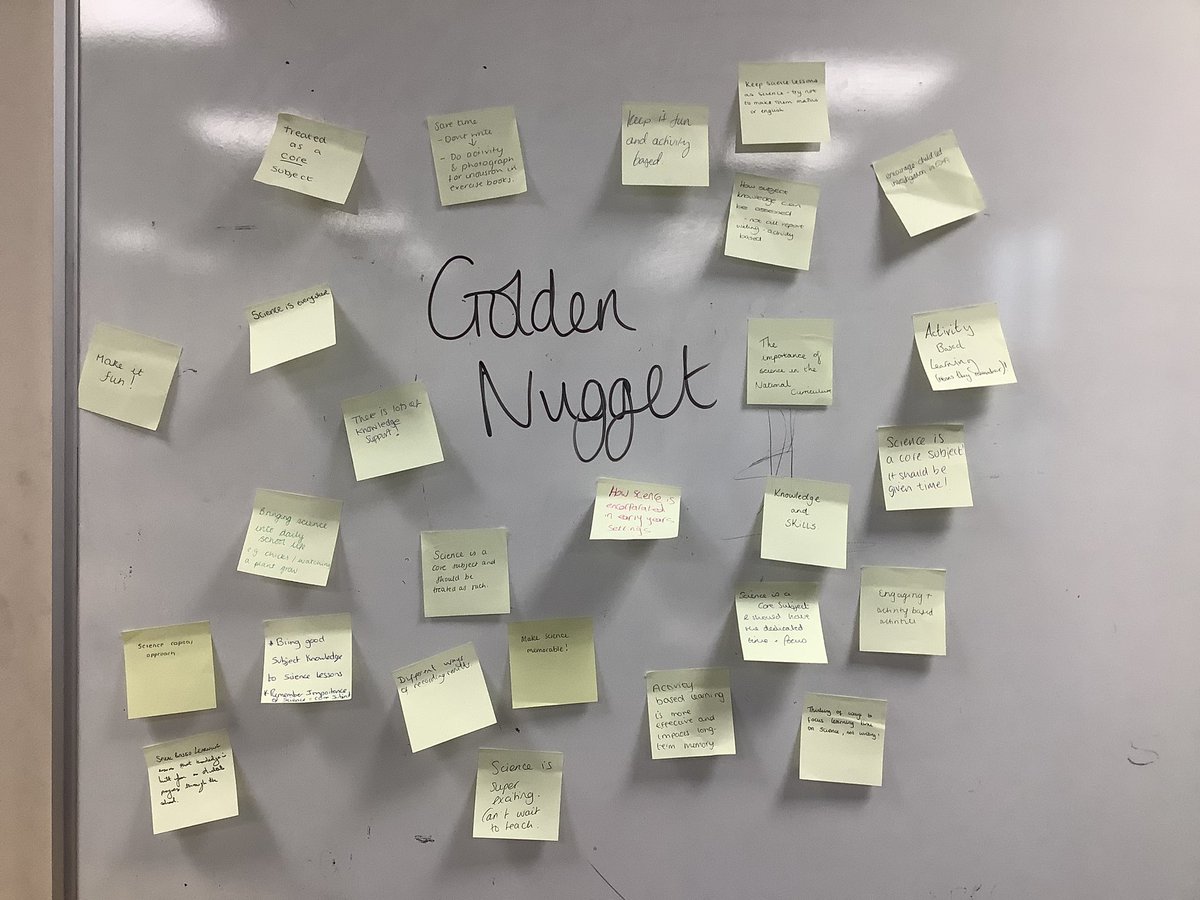 Treated
as a
core
subject
Save time
- Don't write
- Do activity
& photograph
for inclusion in
exercise books.
Keep it fun
and activity
based
Keep science lessons
as science - try not
to make them maths
or english
How subject
knowledge can
be assessed
- not all report
writing - activity
based
encourage child led
investigation
Golden
Nugget
Science is everywhere
Make it
fun!
There is lots of
knowledge
support!
The
importance of
science in the
National Curriculum
Activity
Based
Learning
(more they remember)!
Science is
a core subject
it should be
given time!
Bringing science
into daily
school life
eg chicks / watching
a plant grow
Science is a
core subject and
should be
treated as such.
How science is
in early years
settings
Knowledge
and
SKILLS
Science is a
Core Subject
& should have
its dedicated
time + focus
Engaging +
activity based
activities
Science capital
approach
* Bring good
Subject Knowledge
to Science Lessons
* Remember Importance
of Science = core subject
Different ways
of recording results
Make science
memorable!
Activity
based learning
is more
effective and
impacts long-
term memory.
Thinking of ways to
focus learning time
on science, not writing!
knowledge is
built from
through the
school.
Science is
super
exciting.
Can't wait
to teach.